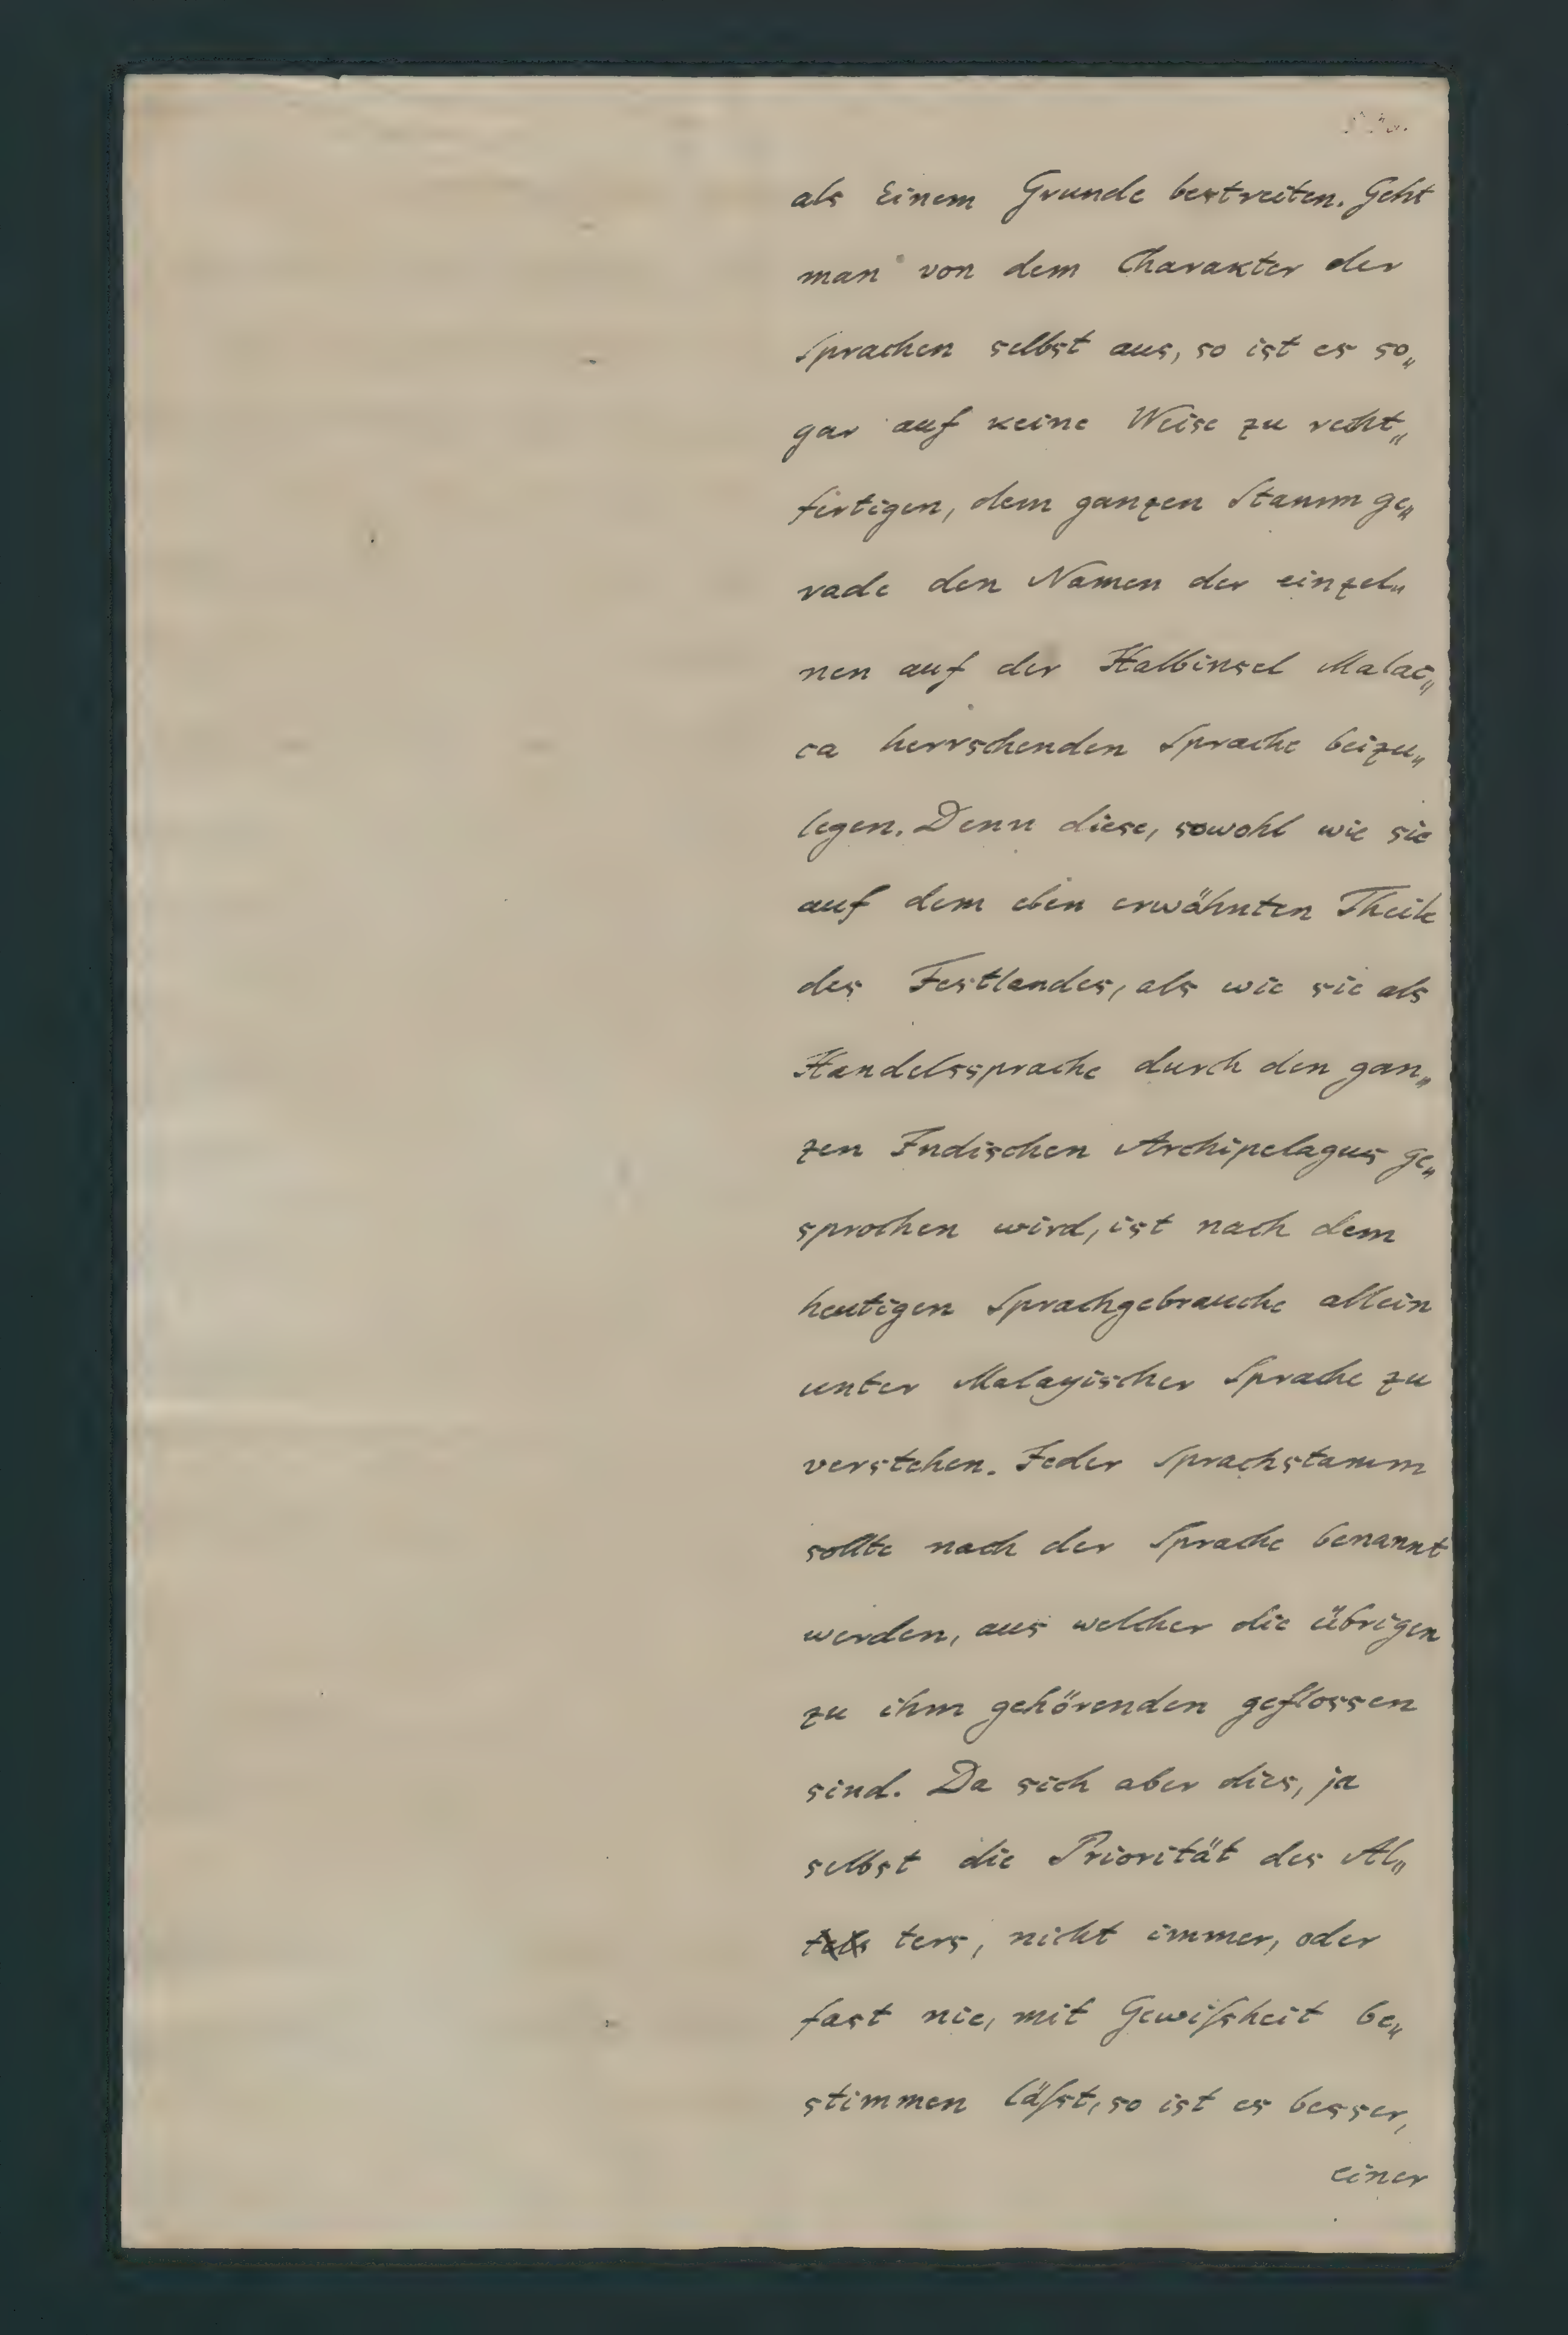 als Einem Grunde bestreiten. Geht
man von dem Charakter der
Sprachen selbst aus, so ist es so„
gar auf keine Weise zu recht„
fertigen, dem ganzen Stamm ge„
rade den Namen der einzel„
nen auf der Halbinsel Malac„
ca herrschenden Sprache beizu„
legen. Denn diese, sowohl wie sie
auf dem eben erwähnten Theile
des Festlandes, als wie sie als
Handelssprache durch den gan„
zen Indischen Archipelagus ge„
sprochen wird, ist nach dem
heutigen Sprachgebrauche allein
unter Malayischer Sprache zu
verstehen. Jeder Sprachstamm
sollte nach der Sprache benannt
werden, aus welcher die übrigen
zu ihm gehörenden geflossen
sind. Da sich aber dies, ja
selbst die Priorität des Al„
ters, nicht immer, oder
fast nie, mit Gewiſsheit be„
stimmen läſst, so ist es besser,
einer